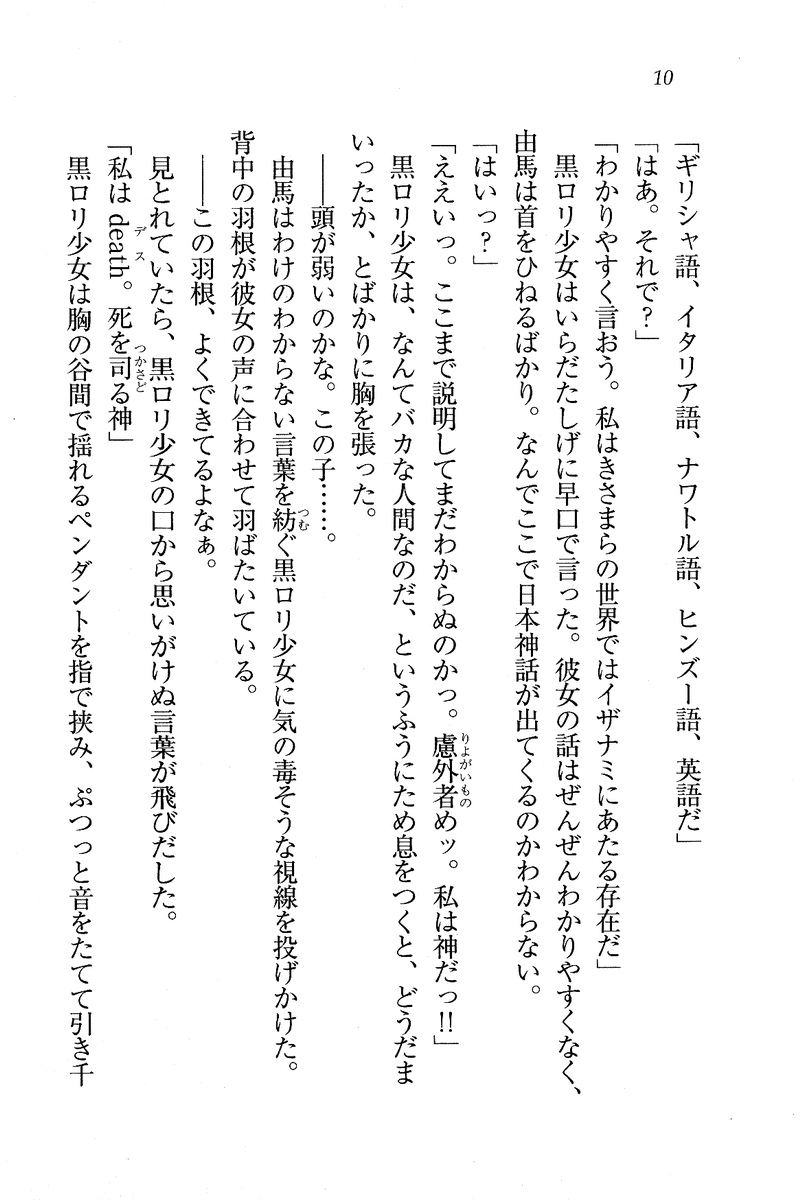 10
「ギリシャ語、イタリア語、ナワトル語、ヒンズー語、英語だ」
「はあ。それで？」
「わかりやすく言おう。私はきさまらの世界ではイザナミにあたる存在だ」
黒ロリ少女はいらだたしげに早口で言った。彼女の話はぜんぜんわかりやすくなく、
由馬は首をひねるばかり。なんでここで日本神話が出てくるのかわからない。
「はいっ？」
「ええいっ。ここまで説明してまだわからぬのかっ。慮外者めッ。私は神だっ!!」
りょがいもの
黒ロリ少女は、なんてバカな人間なのだ、というふうにため息をつくと、どうだま
いったか、とばかりに胸を張った。
――頭が弱いのかな。この子……。
由馬はわけのわからない言葉を紡ぐ黒ロリ少女に気の毒そうな視線を投げかけた。
つむ
背中の羽根が彼女の声に合わせて羽ばたいている。
――この羽根、よくできてるよなぁ。
見とれていたら、黒ロリ少女の口から思いがけぬ言葉が飛びだした。
「私はdeath。死を司る神」
デス
つかさど
黒ロリ少女は胸の谷間で揺れるペンダントを指で挟み、ぷつっと音をたてて引き千